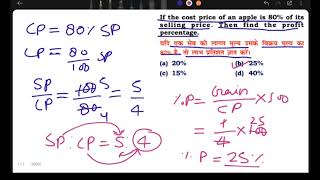 CP = 80% SP
CP = 80/100 SP
SP/CP = 100 5/80 4 = 5/4
SP : CP = 5 4
If the cost price of an apple is 80% of its
selling price. Then find the profit
percentage.
यदि एक सेब का लागत मूल्य उसके विक्रय मूल्य का
80% है, तो लाभ प्रतिशत ज्ञात करें।
(a) 20% (b) 25%
(c) 15% (d) 40%
%P = Gain/CP × 100
= 1/4 × 100 25
% P = 25%